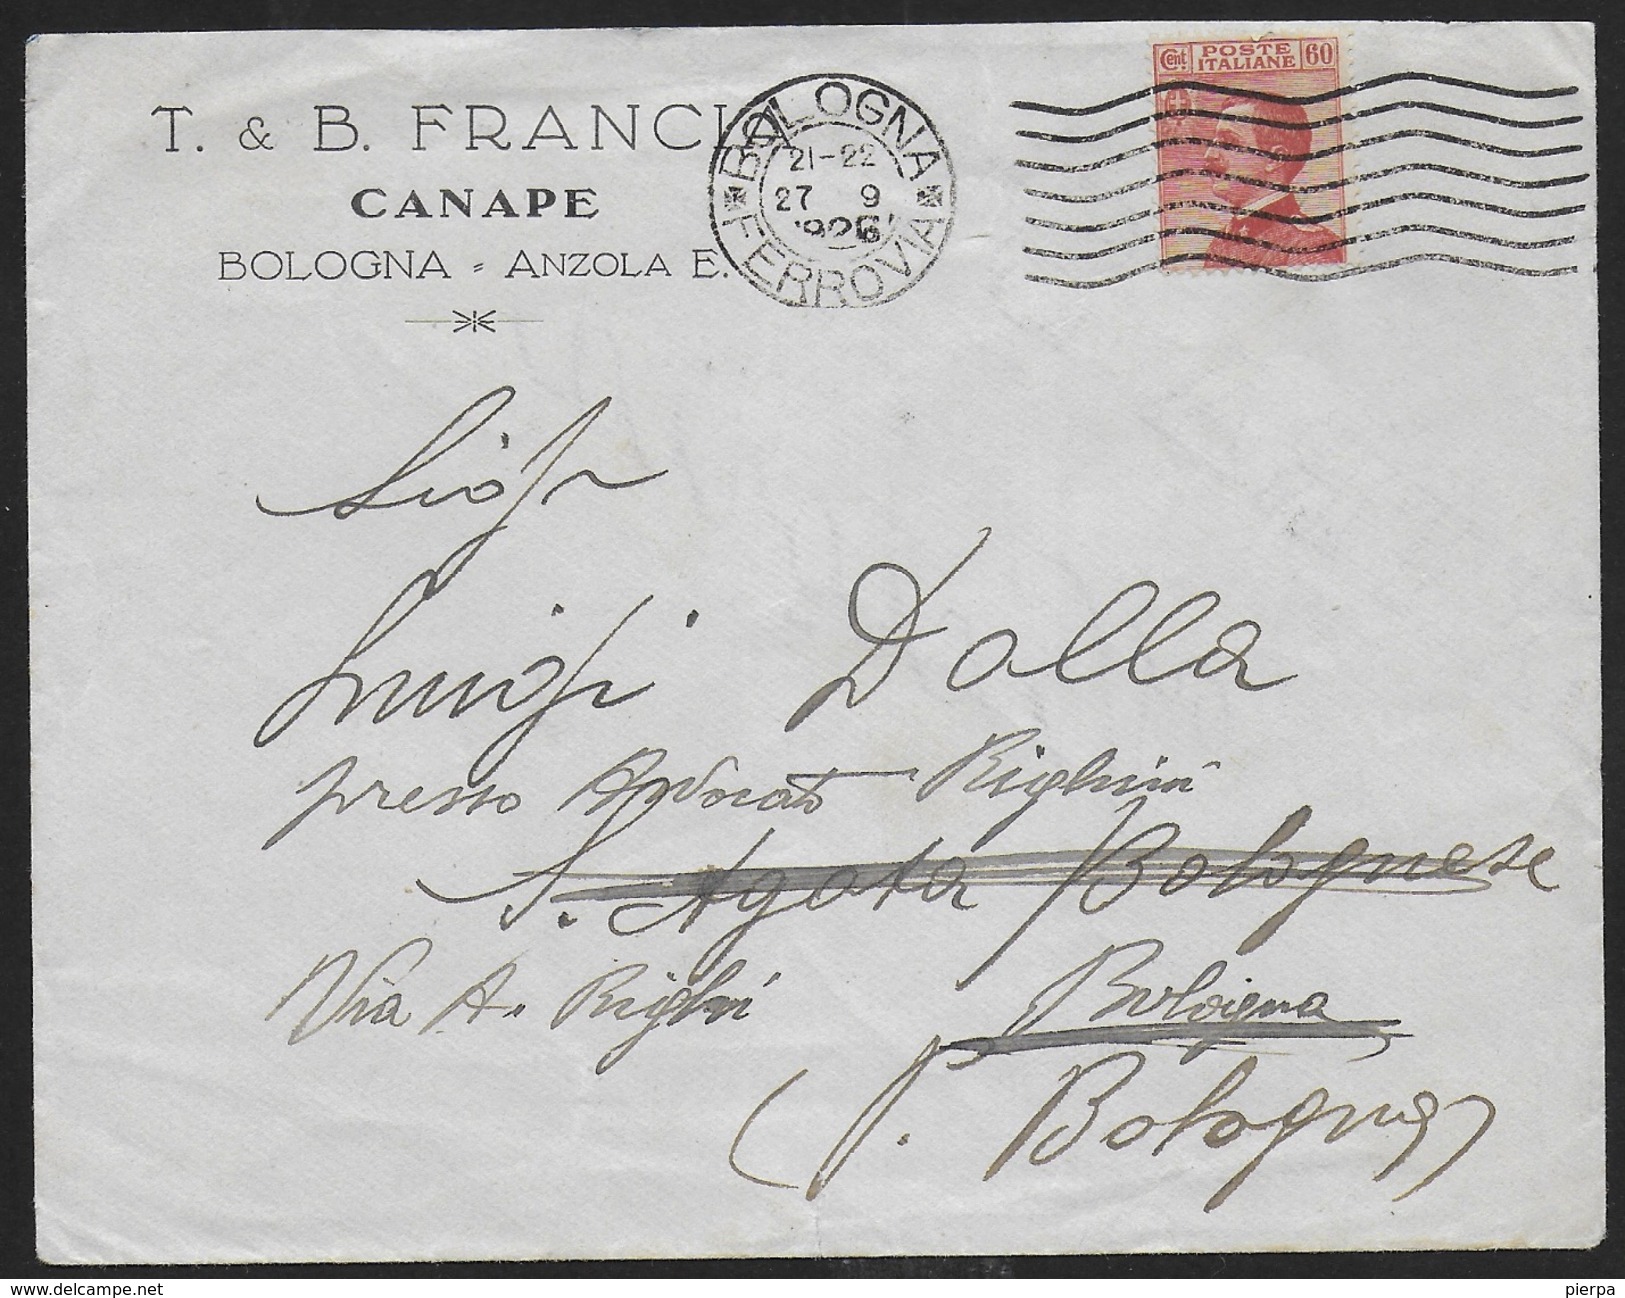 T. & B. FRANCIA
CANAPE
BOLOGNA - ANZOLA E.
BOLOGNA
21-22
27 9
1926
FERROVIA
Cent. POSTE ITALIANE 60
Sigr
Luigi Dalla
presso Avvocato Righini
S. Agata Bolognese
Via A. Righi Bologna
(P. Bologna)
pierpa
www.delcampe.net